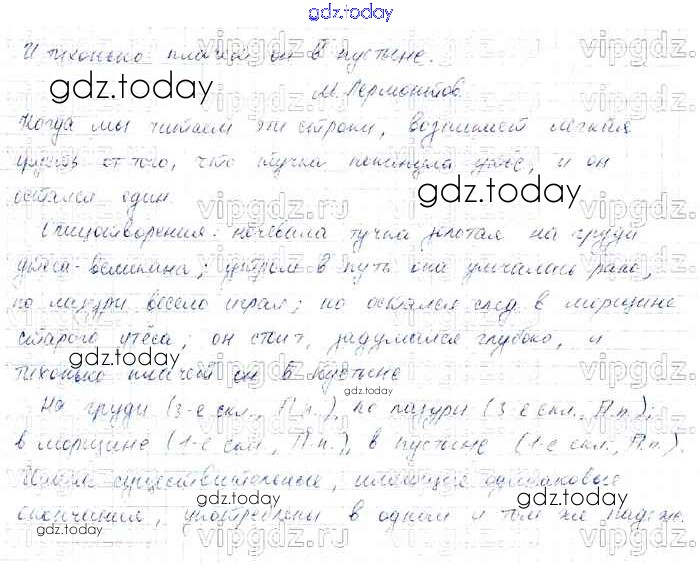 gdz.today
И тихонько плачет он в пустыне.
М. Лермонтов.
Когда мы читаем эти строки, возникает лёгкая
грусть от того, что тучка покинула утёс, и он
остался один.
Олицетворения: ночевала тучка золотая на груди
утёса-великана; утром в путь она умчалась рано,
по лазури весело играя; но остался след в морщине
старого утёса, он стоит, задумался глубоко, и
тихонько плачет он в пустыне
На груди (3-е скл., П.п.), по лазури (3-е скл., П.п.),
в морщине (1-е скл., П.п.), в пустыне (1-е скл., П.п.).
Имена существительные, имеющие одинаковые
окончания, употреблены в одном и том же падеже.
gdz.today
gdz.today
gdz.today
gdz.today
gdz.today
gdz.today
vipgdz.ru